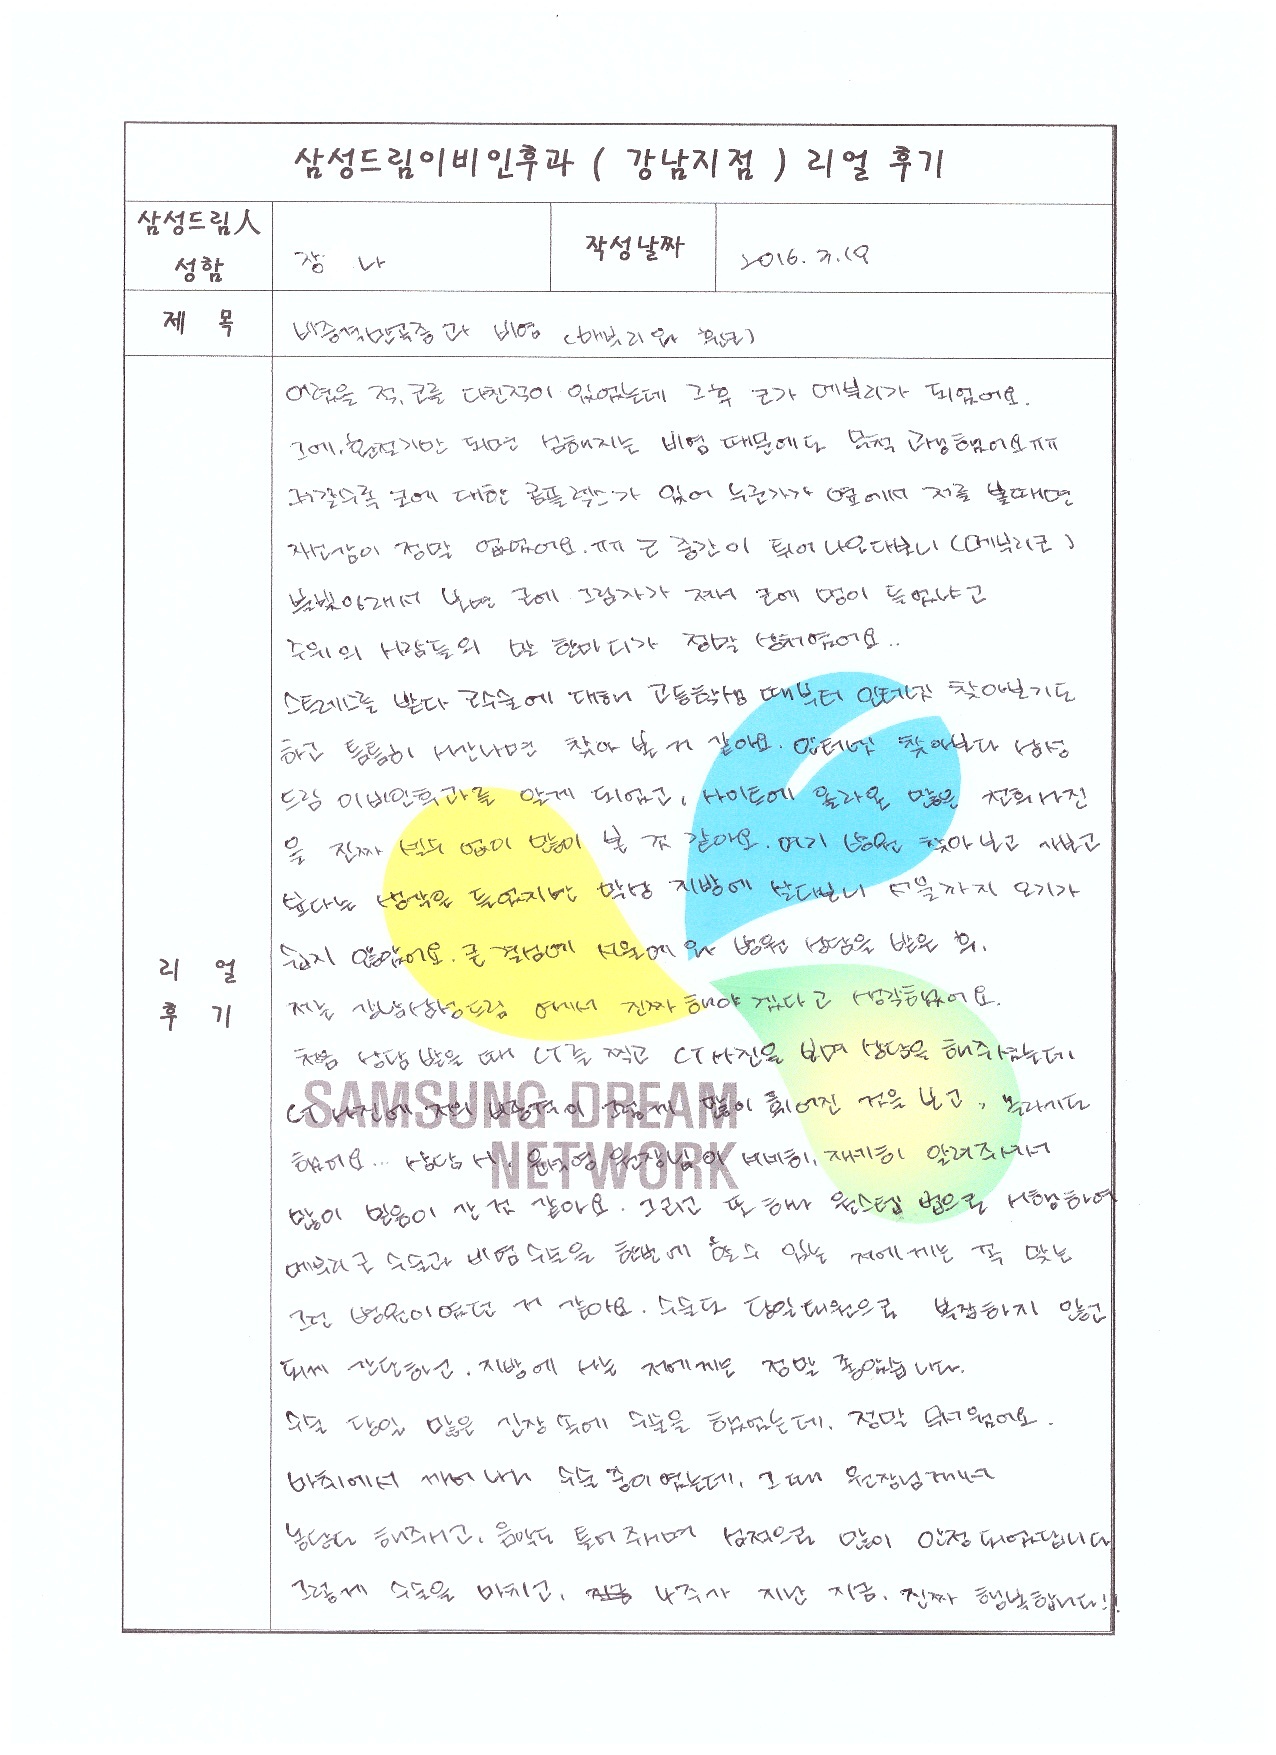 삼성드림이비인후과 ( 강남지점 ) 리얼 후기
삼성드림人 성함
장 나
작성날짜
2016. 7. 19
제 목
비중격만곡증과 비염 (매부리와 휜코)
리 얼 후 기
어렸을 적, 코를 다친적이 있었는데 그 후 코가 메부리가 되었어요.
그에, 환절기만 되면 심해지는 비염 때문에도 무척 고생했어요ㅠㅠ
커갈수록 코에 대한 콤플렉스가 있어 누군가가 옆에서 저를 볼때면
자신감이 정말 없었어요.ㅠㅠ 코 중간이 튀어나오다보니 (메부리코)
불빛아래서 보면 코에 그림자가 져서 코에 멍이 들었냐고
주위의 사람들의 말 한마디가 정말 상처였어요..
스트레스를 받다 코수술에 대해 고등학생 때부터 인터넷 찾아보기도
하고 틈틈히 시간나면 찾아 본 거 같아요. 인터넷 찾아보다 삼성
드림 이비인후과를 알게 되었고, 사이트에 올라온 많은 전후사진
을 진짜 빈도 없이 많이 본 것 같아요. 여기 병원 찾아보고 가보고
싶다는 생각은 들었지만 막상 지방에 살다보니 서울까지 오기가
쉽지 않았어요. 큰 결심에 서울에 와 병원 상담을 받은 후,
저는 강남삼성드림 에서 진짜 해야 겠다고 생각했었어요.
처음 상담 받을 때 CT를 찍고 CT사진을 보며 상담을 해주셨는데,
CT 사진에 저의 비중격이 그렇게 많이 휘어진 것을 보고, 놀라기도
했어요... 상담 시, 원장님이 세세히, 자세히 알려주셔서
많이 믿음이 간 것 같아요. 그리고 또 하나 원스텝 법으로 시행하여
메부리코 수술과 비염수술을 한번에 할수 있는 저에게는 꼭 맞는
그런 병원이였던 거 같아요. 수술도 당일퇴원으로 복잡하지 않고
되게 간단하고, 지방에 사는 저에게는 정말 좋았습니다.
수술 당일 많은 긴장 속에 수술을 했었는데, 정말 무서웠어요.
마취에서 깨어나니 수술 중이였는데, 그 때 원장님께서
농담도 해주시고, 음악도 틀어주시며 심적으로 많이 안정되었답니다
그렇게 수술을 마치고, 4주차 지난 지금, 진짜 행복합니다!!
SAMSUNG DREAM
NETWORK